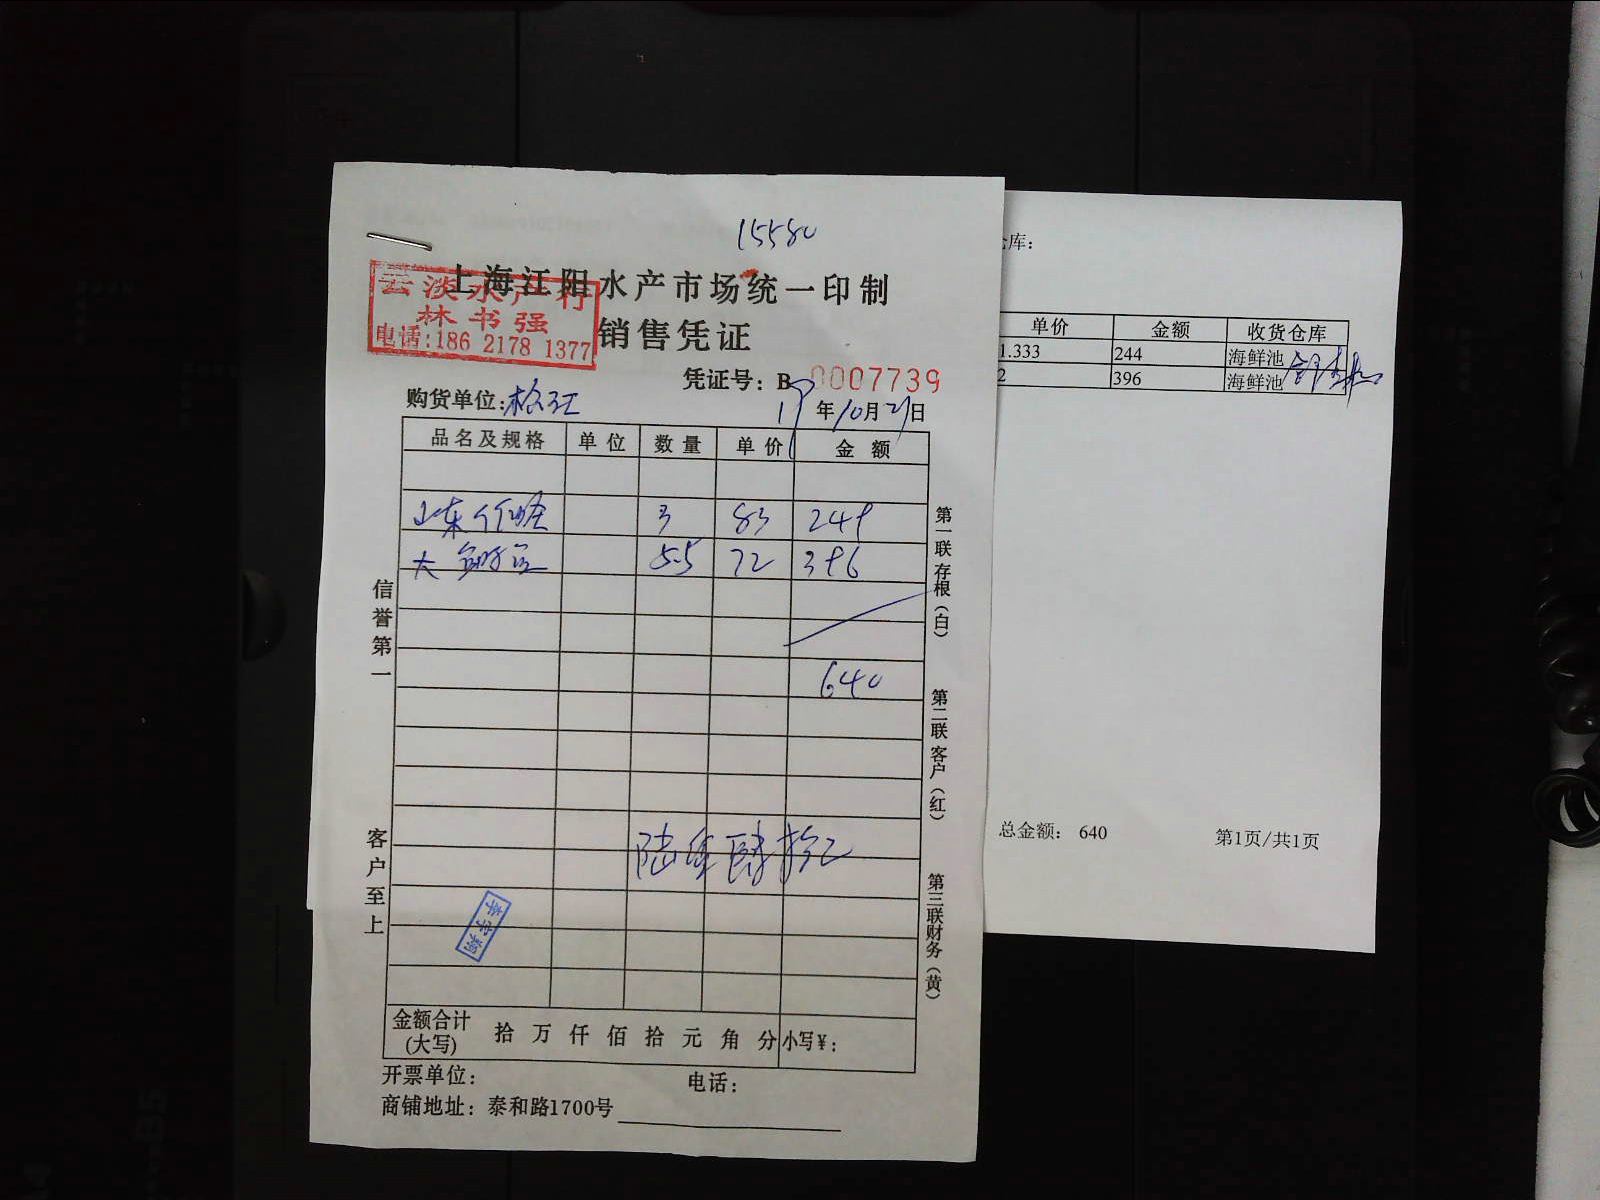 15580
上海江阳水产市场统一印制
云淡水产行
林书强
电话:186 2178 1377
销售凭证
凭证号：B 0007739
购货单位:格江
19年10月21日
品名及规格 单位 数量 单价 金额
山东 3 83 249
大 5.5 72 396
640
陆佰肆拾元
李宇翔
金额合计(大写) 拾 万 仟 佰 拾 元 角 分 小写¥：
开票单位： 电话：
商铺地址：泰和路1700号
信誉第一
客户至上
第一联存根（白）
第二联客户（红）
第三联财务（黄）
仓库：
单价 金额 收货仓库
1.333 244 海鲜池
2 396 海鲜池
总金额： 640 第1页/共1页